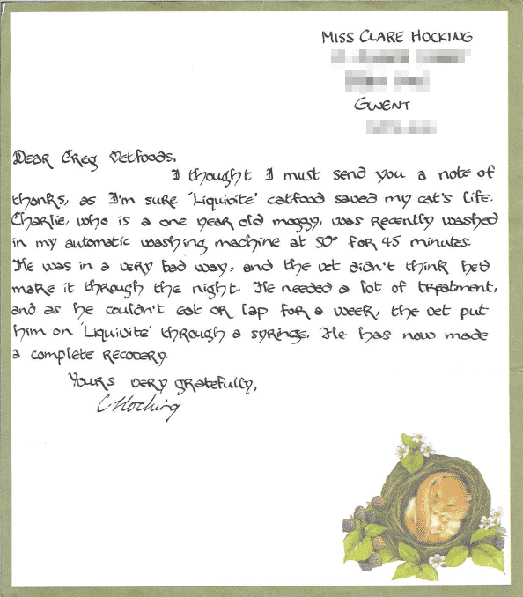 MISS CLARE HOCKING
GWENT
Dear Creg Vetfoods,
I thought I must send you a note of
thanks, as I'm sure 'Liquivite' catfood saved my cat's life.
Charlie, who is a one year old moggy, was recently washed
in my automatic washing machine at 50° for 45 minutes.
He was in a very bad way, and the vet didn't think he'd
make it through the night. He needed a lot of treatment,
and as he couldn't eat or lap for a week, the vet put
him on 'Liquivite' through a syringe. He has now made
a complete recovery
Yours very gratefully,
C Hocking